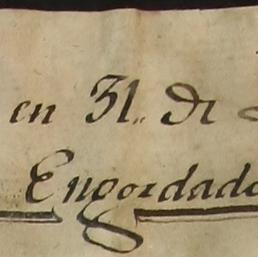 en 31.. de
Engordado